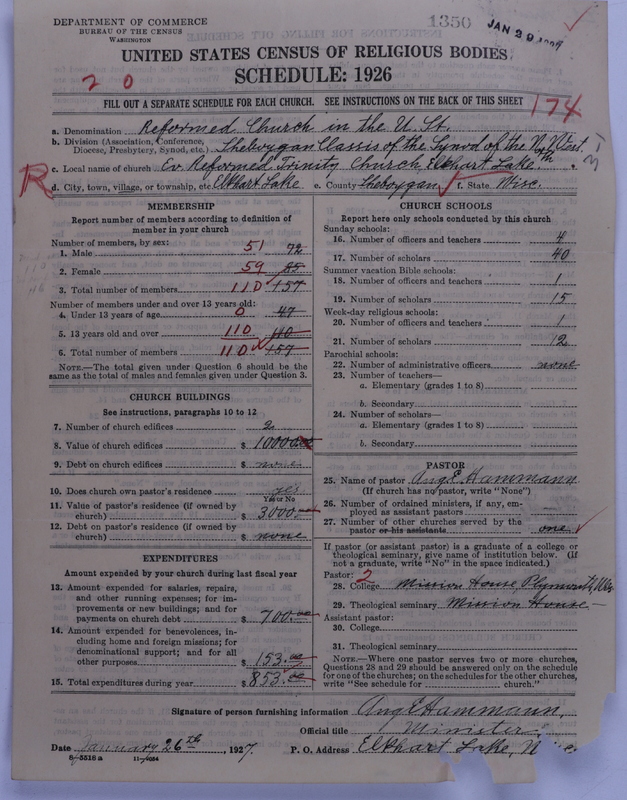 DEPARTMENT OF COMMERCE
BUREAU OF THE CENSUS
WASHINGTON
1350
JAN 29 1927
UNITED STATES CENSUS OF RELIGIOUS BODIES
SCHEDULE: 1926
2 0
FILL OUT A SEPARATE SCHEDULE FOR EACH CHURCH. SEE INSTRUCTIONS ON THE BACK OF THIS SHEET
174
a. Denomination Reformed Church in the U. St.
b. Division (Association, Conference, Diocese, Presbytery, Synod, etc.) Sheboygan Classis of the Synod of the N. West.
c. Local name of church Ev. Reformed Trinity Church, Elkhart Lake
R
d. City, town, village, or township, etc. Elkhart Lake e. County Sheboygan f. State Wisc.
MEMBERSHIP
Report number of members according to definition of
member in your church
Number of members, by sex:
1. Male 51 72
2. Female 59 85
3. Total number of members 110 157
Number of members under and over 13 years old:
4. Under 13 years of age 0 47
5. 13 years old and over 110 110
6. Total number of members 110 157
NOTE.—The total given under Question 6 should be the
same as the total of males and females given under Question 3.
CHURCH BUILDINGS
See instructions, paragraphs 10 to 12
7. Number of church edifices 2
8. Value of church edifices $ 10000.00
9. Debt on church edifices $ none
10. Does church own pastor's residence yes
Yes or No
11. Value of pastor's residence (if owned by
church) $ 3000.
12. Debt on pastor's residence (if owned by
church) $ none
EXPENDITURES
Amount expended by your church during last fiscal year
13. Amount expended for salaries, repairs,
and other running expenses; for im-
provements or new buildings; and for
payments on church debt $ 700.00
14. Amount expended for benevolences, in-
cluding home and foreign missions; for
denominational support; and for all
other purposes $ 153.00
15. Total expenditures during year $ 853.00
CHURCH SCHOOLS
Report here only schools conducted by this church
Sunday schools:
16. Number of officers and teachers 4
17. Number of scholars 40
Summer vacation Bible schools:
18. Number of officers and teachers 1
19. Number of scholars 15
Week-day religious schools:
20. Number of officers and teachers 1
21. Number of scholars 12
Parochial schools:
22. Number of administrative officers none
23. Number of teachers—
a. Elementary (grades 1 to 8)
b. Secondary
24. Number of scholars—
a. Elementary (grades 1 to 8)
b. Secondary
PASTOR
25. Name of pastor Aug E. Hammann
(If church has no pastor, write "None")
26. Number of ordained ministers, if any, em-
ployed as assistant pastors
27. Number of other churches served by the
pastor or his assistants one
If pastor (or assistant pastor) is a graduate of a college or
theological seminary, give name of institution below. (If
not a graduate, write "No" in the space indicated.)
Pastor: 2
28. College Mission House, Plymouth, Wis
29. Theological seminary Mission House
Assistant pastor:
30. College
31. Theological seminary
NOTE.—Where one pastor serves two or more churches,
Questions 28 and 29 should be answered only on the schedule
for one of the churches; on the schedules for the other churches,
write "See schedule for church."
Signature of person furnishing information Aug E Hammann,
Official title Minister
Date January 26th, 1927. P. O. Address Elkhart Lake, Wisc.
8-5518 a 11-9054